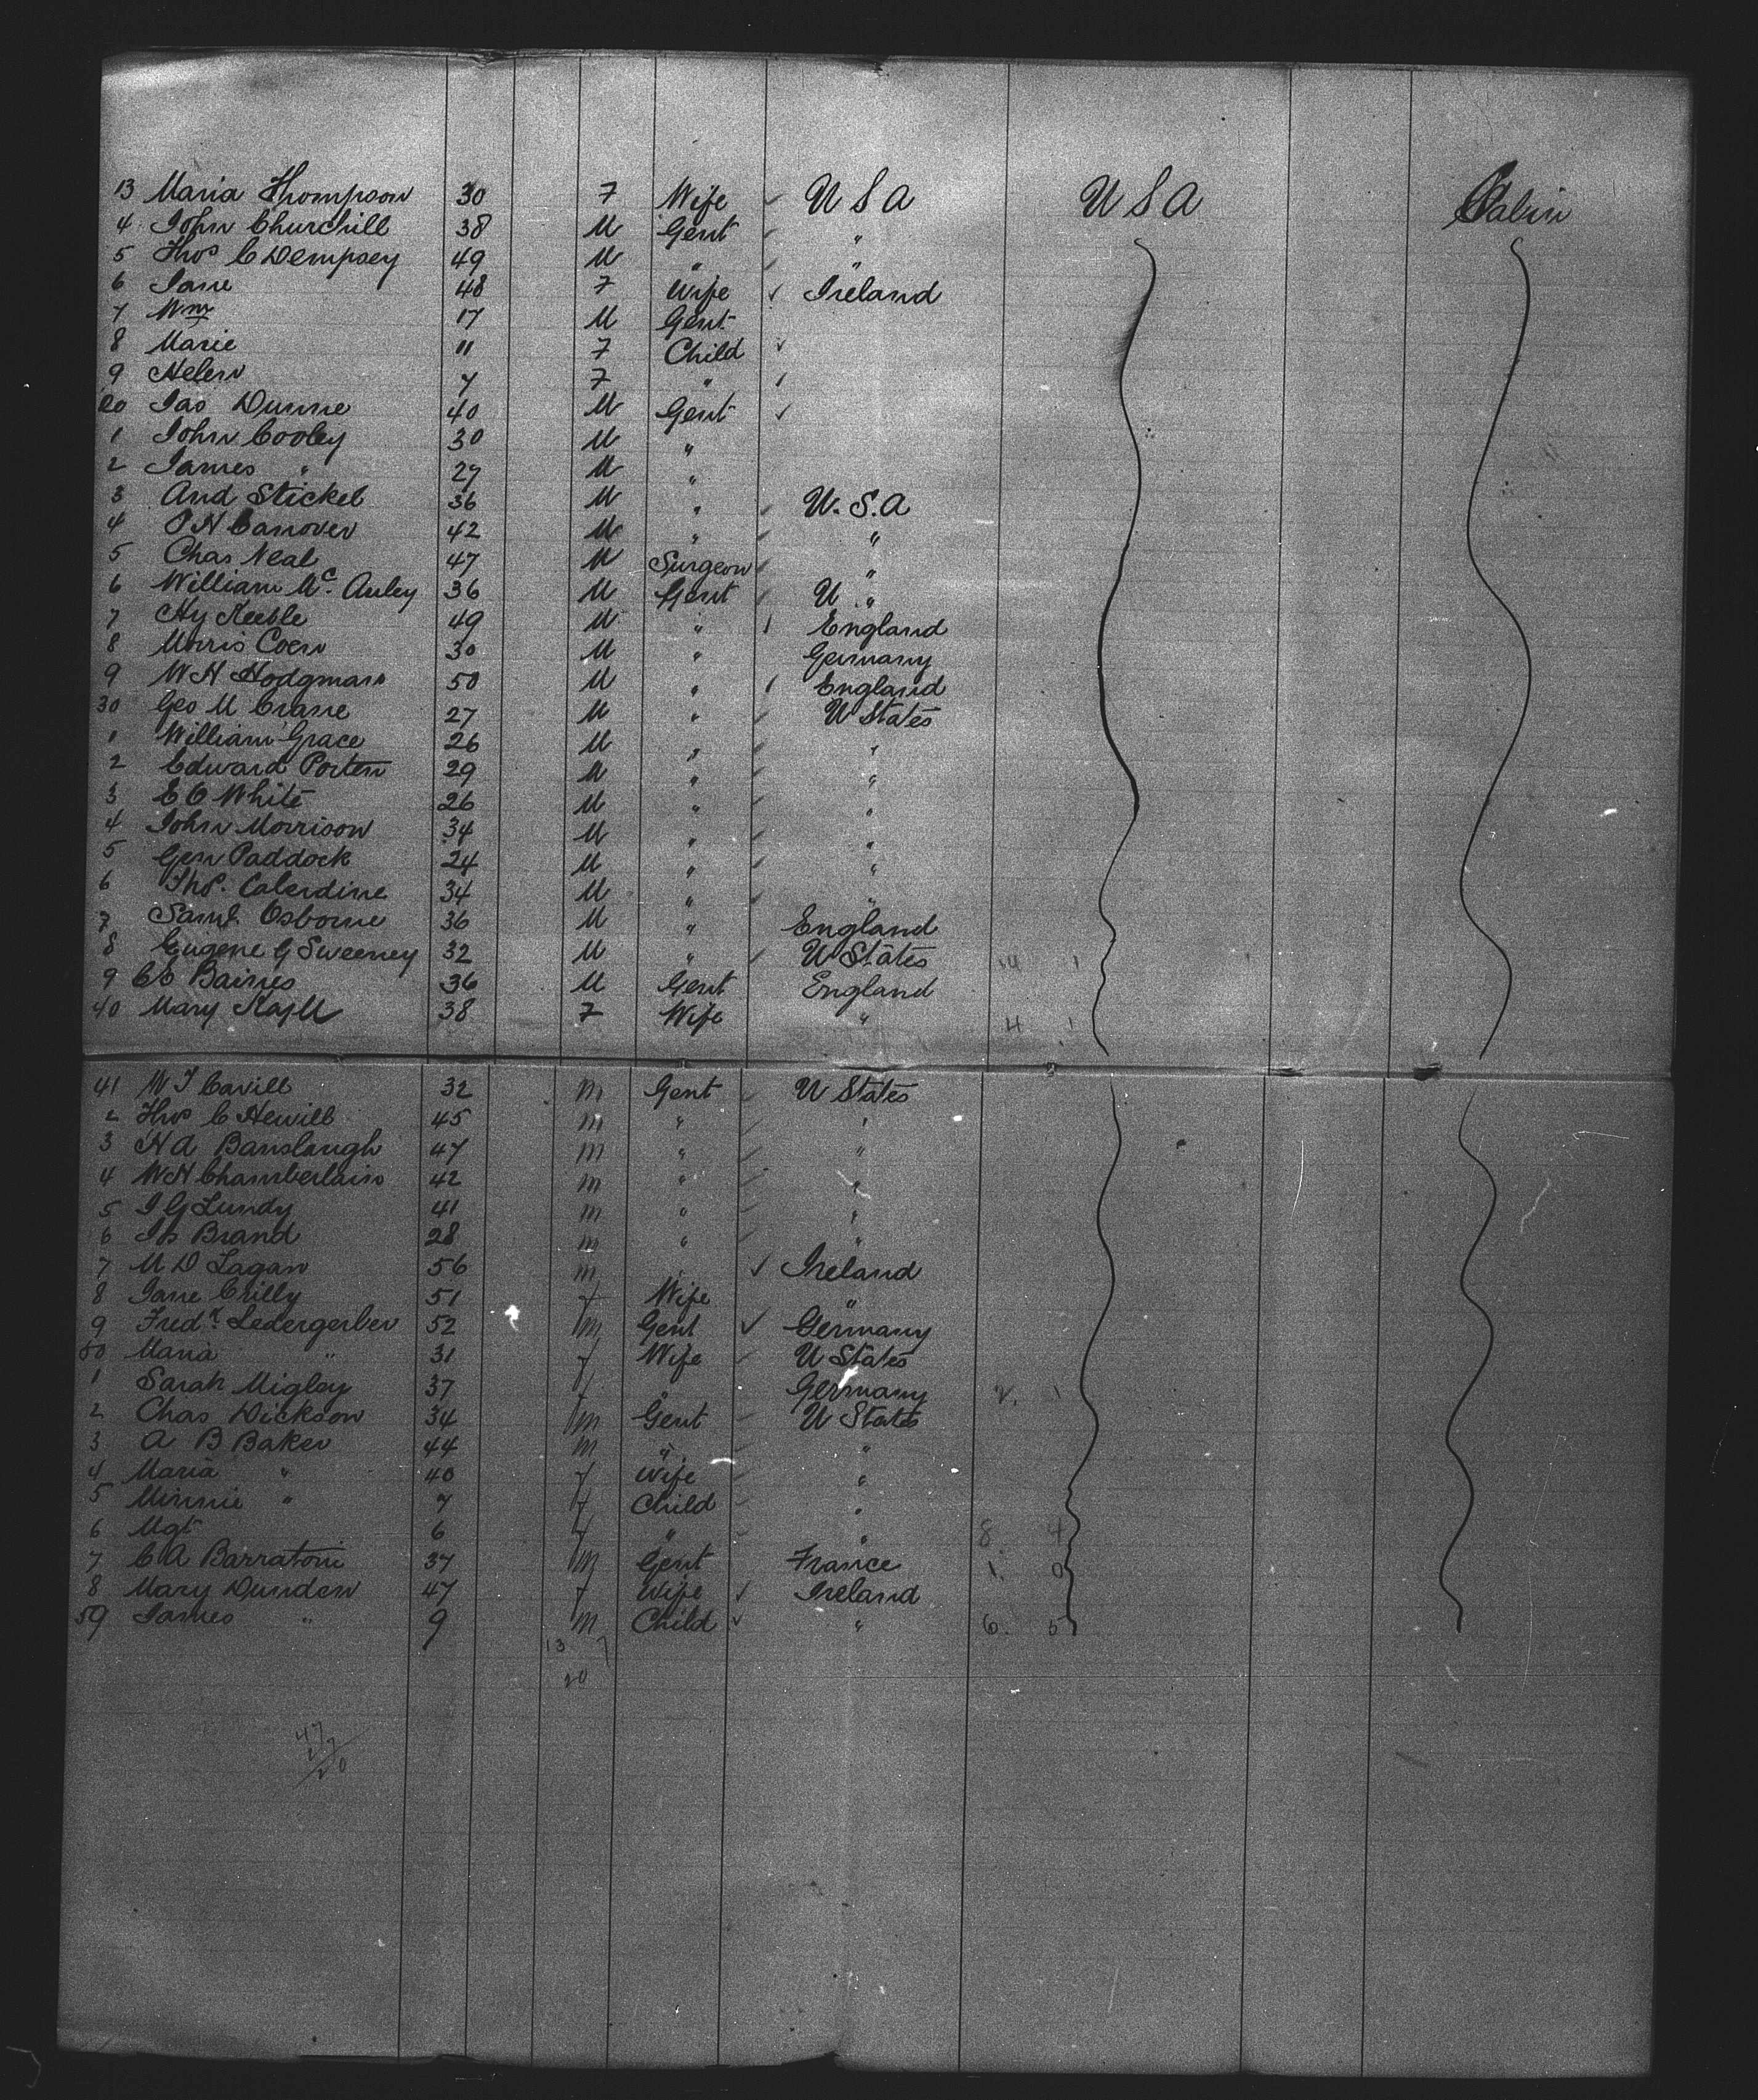 13 Maria Thompson 30 F Wife ✓ U S A U S A Cabin
4 John Churchill 38 M Gent ✓ "
5 Thos C Dempsey 49 M " ✓ "
6 Jane 48 F Wife ✓ Ireland
7 Wm 17 M Gent
8 Marie 11 F Child ✓
9 Helen 7 F " ✓
20 Jas Dunne 40 M Gent ✓
1 John Cooley 30 M "
2 James " 27 M "
3 And Stickel 36 M " ✓ U. S. A
4 O H Canover 42 M " ✓ "
5 Chas Neal 47 M Surgeon ✓ "
6 William Mc Auley 36 M Gent ✓ U "
7 Hy Keeble 49 M " ✓ England
8 Morris Coen 30 M " Germany
9 W H Hodgman 50 M " ✓ England
30 Geo M Crane 27 M " ✓ U States
1 William Grace 26 M " ✓ "
2 Edward Porten 29 M " ✓ "
3 E O White 26 M " ✓ "
4 John Morrison 34 M " ✓ "
5 Gen Paddock 24 M " ✓ "
6 Thos. Calerdine 34 M " ✓ "
7 Saml. Osborne 36 M " England
8 Eugene G Sweeney 32 M " ✓ U States 14 1
9 Baines 36 M Gent England
40 Mary 38 F Wife " 4 1
41 W J Cavill 32 m Gent ✓ U States
2 Thos C Hewill 45 m " ✓ "
3 H A Banslaugh 47 m " ✓ "
4 W H Chamberlain 42 m " ✓ "
5 J G Lundy 41 m " ✓ "
6 Js Brand 28 m " ✓ "
7 M D Lagan 56 m " ✓ Ireland
8 Jane Crilly 51 f Wife "
9 Fredk. Ledergerber 52 m Gent ✓ Germany
50 Maria " 31 f Wife ✓ U States
1 Sarah Miglay 37 f " Germany 2. 1
2 Chas Dickson 34 m Gent ✓ U States
3 A B Baker 44 m " ✓ "
4 Maria " 40 f Wife ✓ "
5 Minnie " 7 f Child ✓ "
6 Mgt 6 f " ✓ " 8. 4
7 C A Barratoni 37 m Gent France 1. 0
8 Mary Dundon 47 f Wife ✓ Ireland
59 James " 9 m Child ✓ " 6. 5
13 7
20
47
27
20